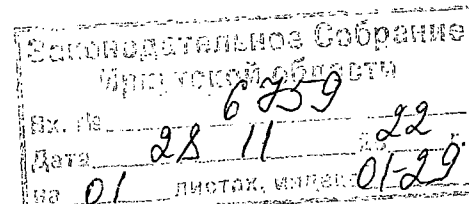 Законодательное Собрание
Иркутской области
Вх. № 6759
Дата 28 11 20 22 г.
на 01 листах, индекс 01-29